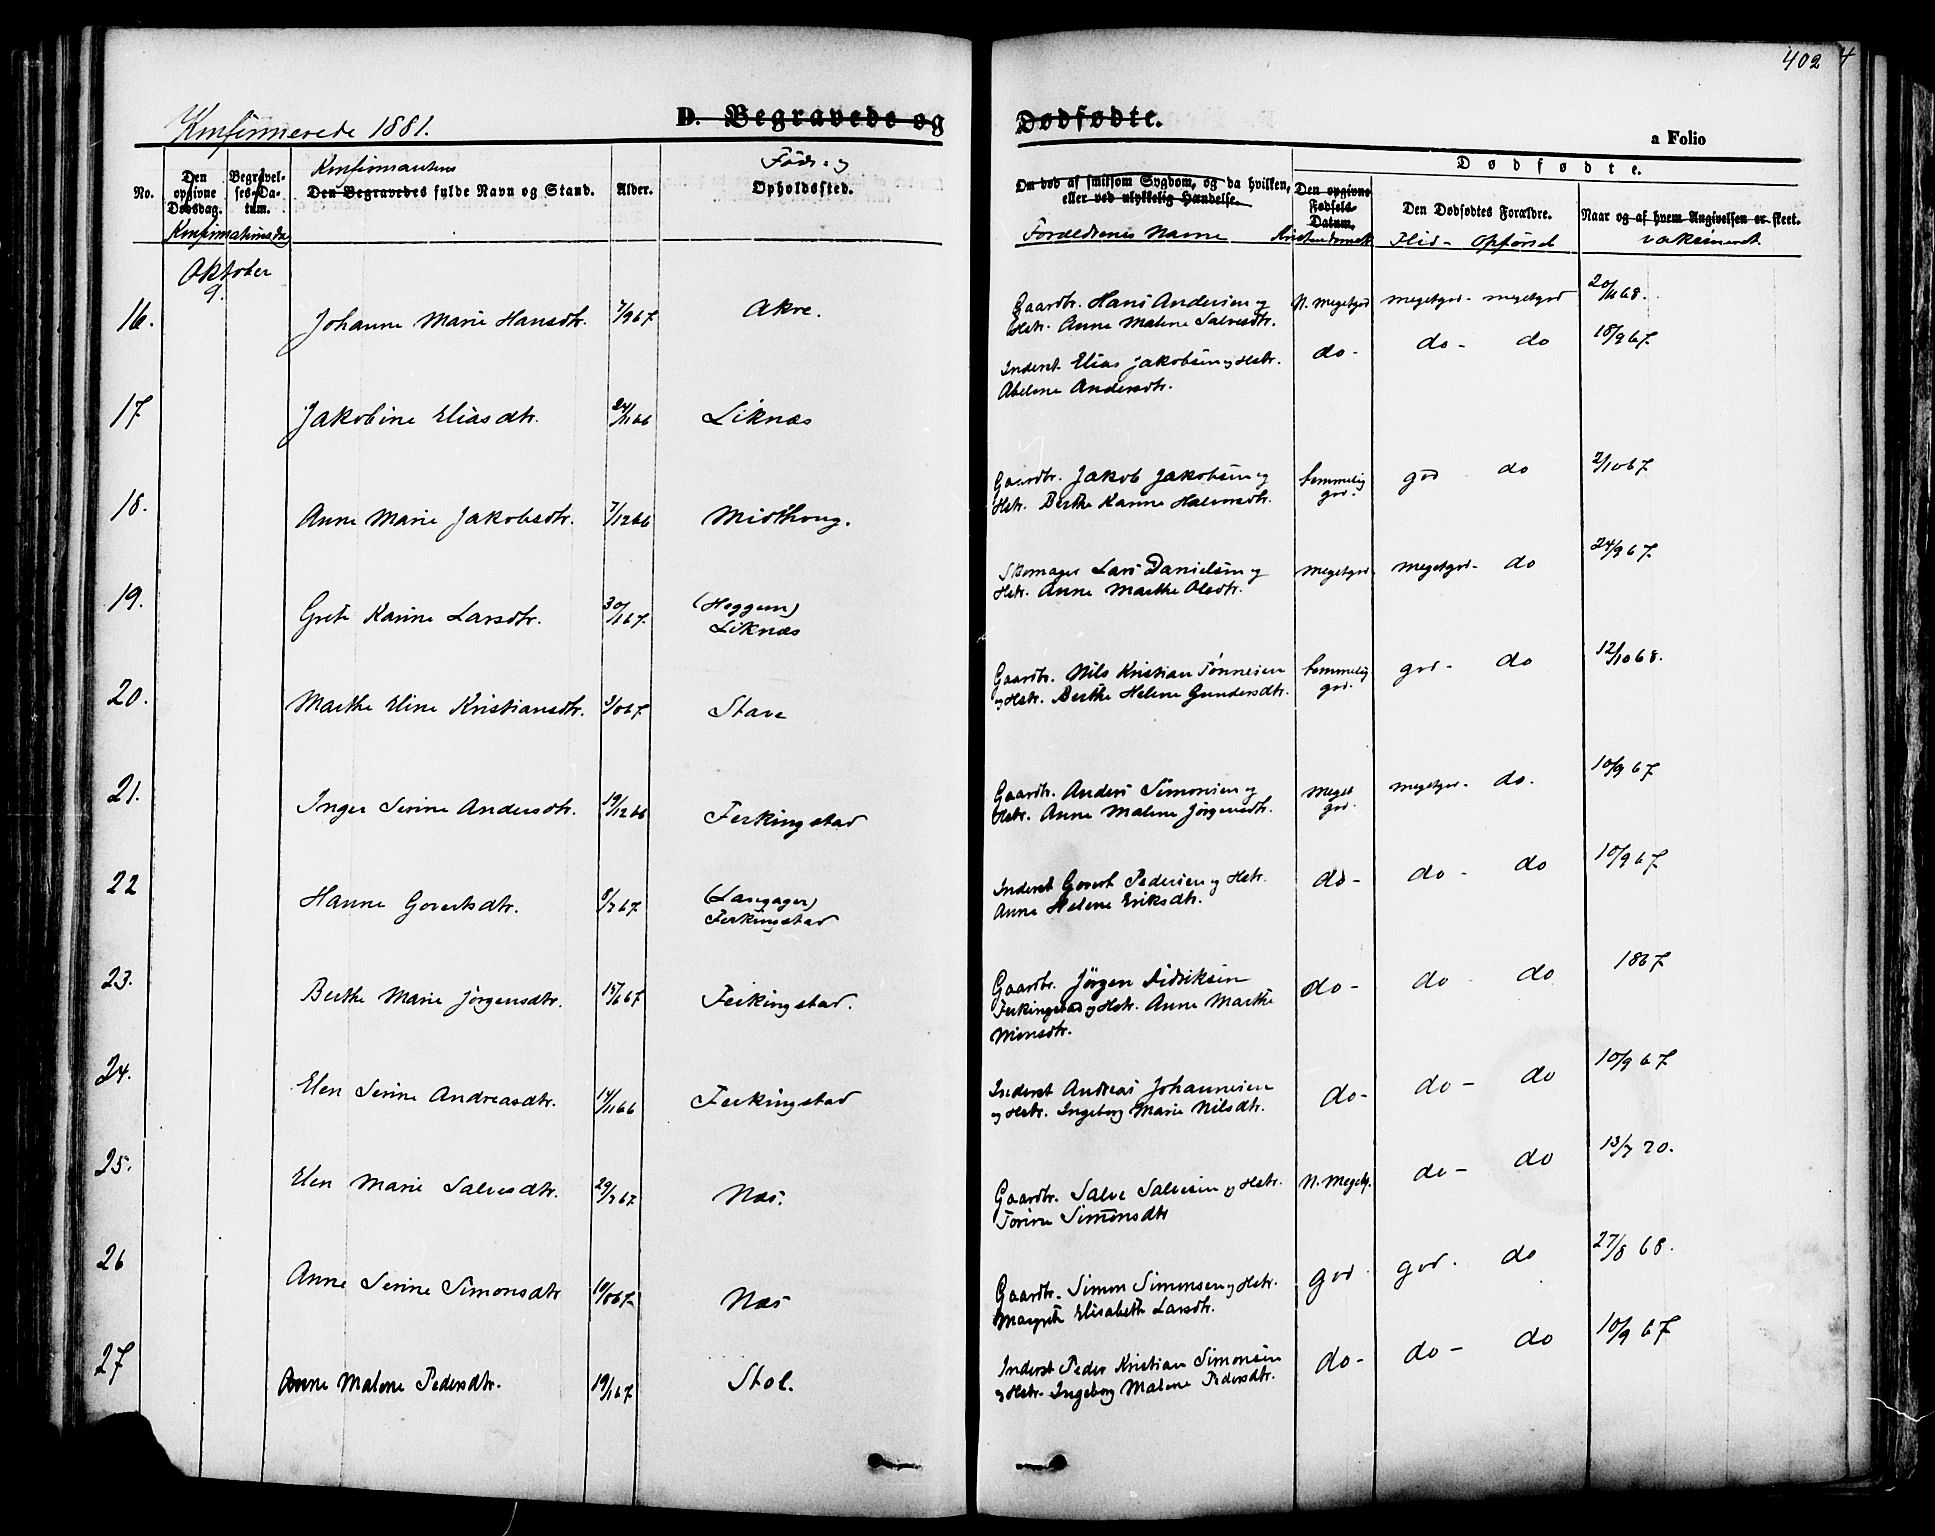 402 4
Konfirmerede 1881.
D. Begravede og Dødfødte.
a Folio
No.
Den opgivne Dødsdag.
Begravelses-Datum.
Konfirmationsdag
Konfirmantens
Den Begravedes fulde Navn og Stand.
Alder.
Føde- og
Opholdssted.
Om død af smitsom Sygdom, og da hvilken,
eller ved ulykkelig Hændelse.
Forældrenes Navne
Dødfødte.
Den opgivne Fødsels-Datum.
Kristendomsk
Den Dødfødtes Forældre.
Flid - Opførsel
Naar og af hvem Angivelsen er skeet.
vaksineret
Oktober
9.
16. Johanne Marie Hansdtr. 7/9 67 Akre. Gaardbr. Hans Andersen og N. megetgod megetgod - megetgod 20/11 68.
Hstr. Anne Malene Salvesdtr.
17 Jakobine Eliasdtr. 24/11 66 Liknæs Inderst Elias Jakobsen og Hstr. do - do - do 18/9 67.
Abelone Andersdtr.
18. Anne Marie Jakobsdtr. 7/12 66 Midthong. Gaardbr. Jakob Jakobsen og temmelig god. god do 2/10 67
Hstr. Berthe Karine Halvorsdtr.
19. Grete Karine Larsdtr. 30/1 67. (Heggem) Liknæs Skomager Lars Danielsen og megetgod. megetgod - do 24/9 67.
Hstr. Anne Marthe Olsdtr.
20. Marthe Eline Kristiansdtr. Stave Gaardbr. Nils Kristian Tønnesen temmelig god. god - do 12/10 68.
og Hstr. Berthe Helene Gundersdtr.
21. Inger Serine Andersdtr. 19/12 66 Ferkingstad Gaardbr. Anders Simonsen og meget god. megetgod - do. 10/9 67
Hstr. Anne Malene Jørgensdtr.
22 Hanne Govertsdtr. 8/7 67 (Langager) Ferkingstad Inderst Govert Pedersen og Hstr. do - do - do 10/9 67.
Anne Helene Eriksdtr.
23. Berthe Marie Jørgensdtr. 15/6 67 Ferkingstad. Gaardbr. Jørgen Didriksen do - do - do 1867
Ferkingstad og Hstr. Anne Marthe
Monsdtr.
24. Elen Serine Andreasdtr. 14/11 66 Ferkingstad Inderst Andreas Johannesen do - do - do 10/9 67
og Hstr. Ingeborg Marie Nilsdtr.
25. Elen Marie Salvesdtr. 29/7 67 Næs. Gaardbr. Salve Salvesen og Hstr. N. Megetg. do - do 13/7 70.
Torine Simonsdtr
26 Anne Serine Simonsdtr Næs Gaardbr. Simon Simonsen og Hstr. god god. do 27/8 68.
Margrete Elisabeth Larsdtr.
27 Anne Malene Pedersdtr. 19/1 67 Stol. Inderst Peder Kristian Simonsen do - do - do 10/9 67
og Hstr. Ingeborg Malene Pedersdtr.